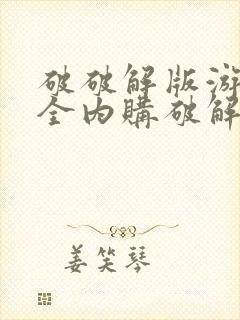 破破解版游
全内購破解
姜笑琴